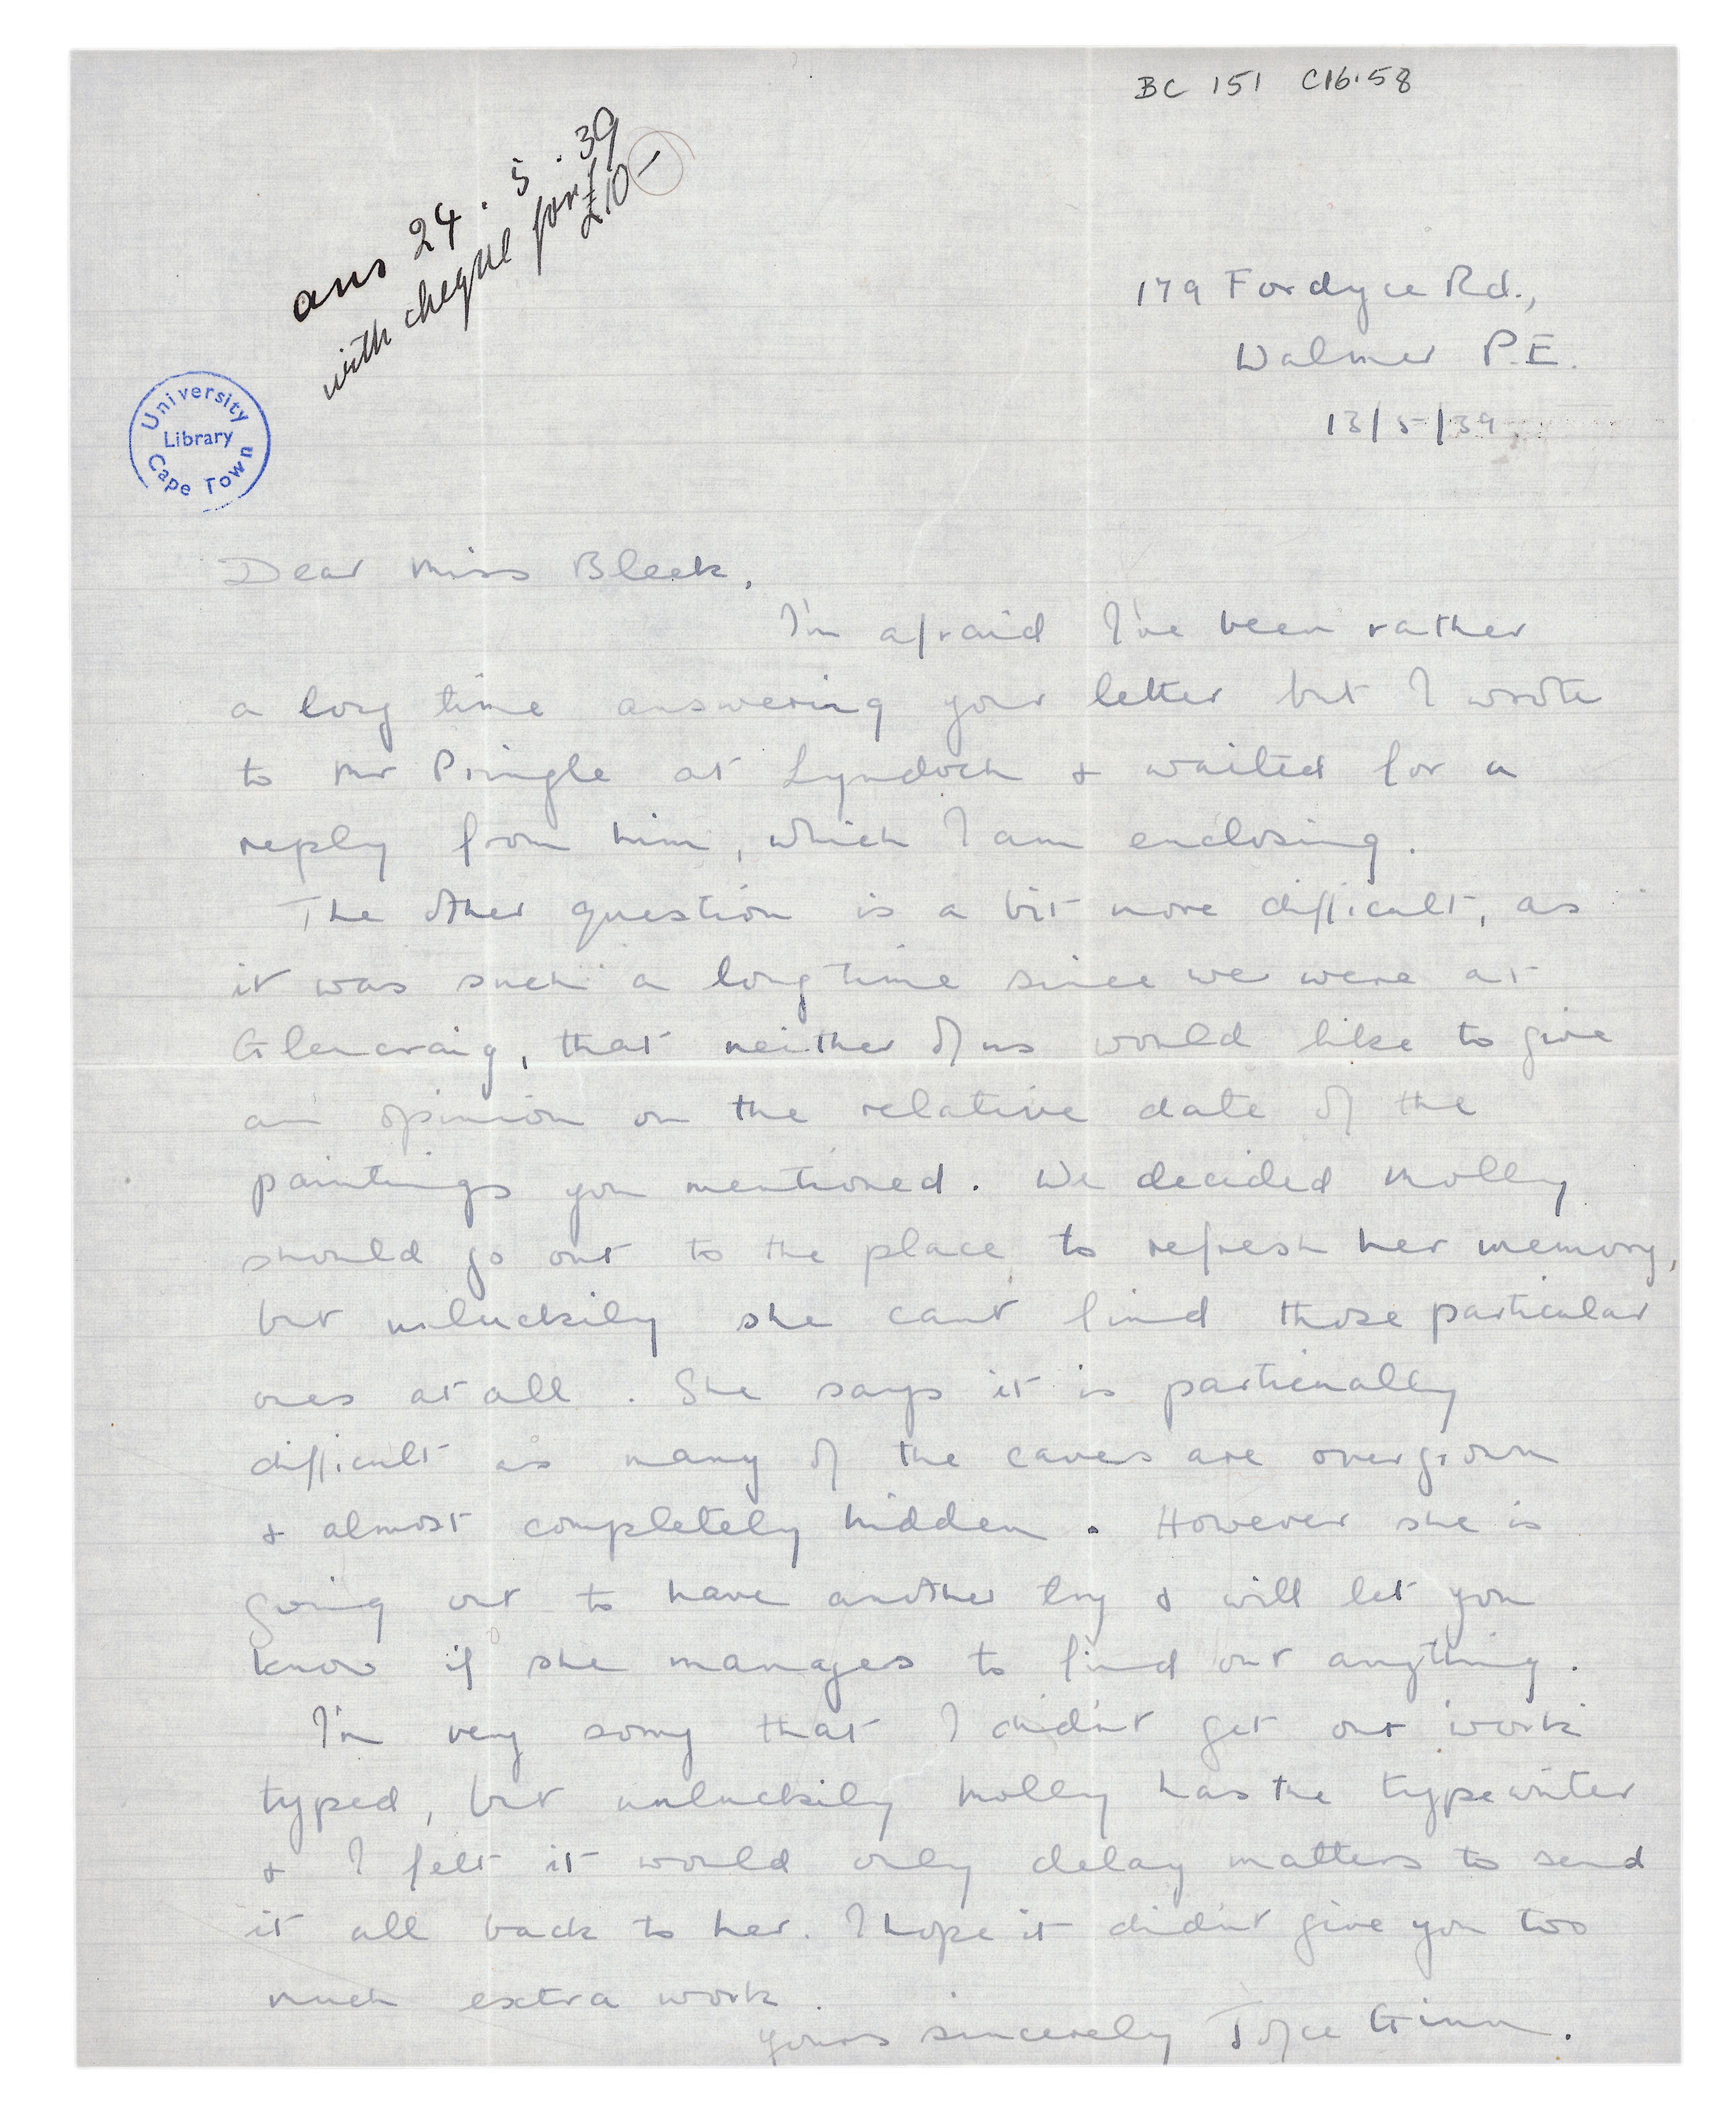 BC 151 C16.58
ans 24.5.39
with cheque for
£10-
University
Library
Cape Town
179 Fordyce Rd.,
Walmer P.E.
13/5/39
Dear Miss Bleek,
I'm afraid I've been rather
a long time answering your letter but I wrote
to Mr Pringle at Lyndoch & waited for a
reply from him, which I am enclosing.
The other question is a bit more difficult, as
it was such a long time since we were at
Glencraig, that neither of us would like to give
an opinion on the relative date of the
paintings you mentioned. We decided Molly
should go out to the place to refresh her memory,
but unluckily she can't find those particular
ones at all. She says it is particually
difficult as many of the caves are overgrown
& almost completely hidden. However she is
going out to have another try & will let you
know if she manages to find out anything.
I'm very sorry that I didn't get our work
typed, but unluckily Molly has the typewriter
& I felt it would only delay matters to send
it all back to her. I hope it didn't give you too
much extra work.
Yours sincerely Joyce Ginn.